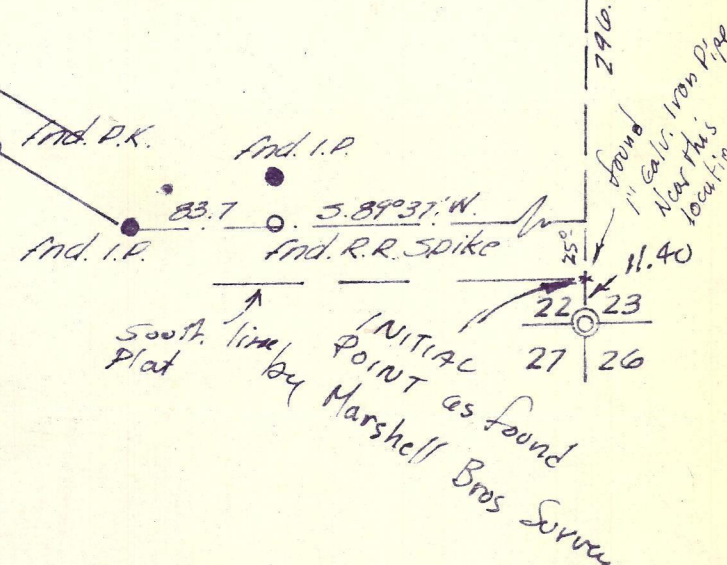 296.
found
1" Galv. Iron Pipe
Near this
location
fnd. P.K.
fnd. I.P.
83.7
S. 89°37' W.
fnd. I.P.
fnd. R.R. Spike
25°
11.40
22 23
27 26
South line
Plat
INITIAL
POINT as found
by Marshell Bros Surve